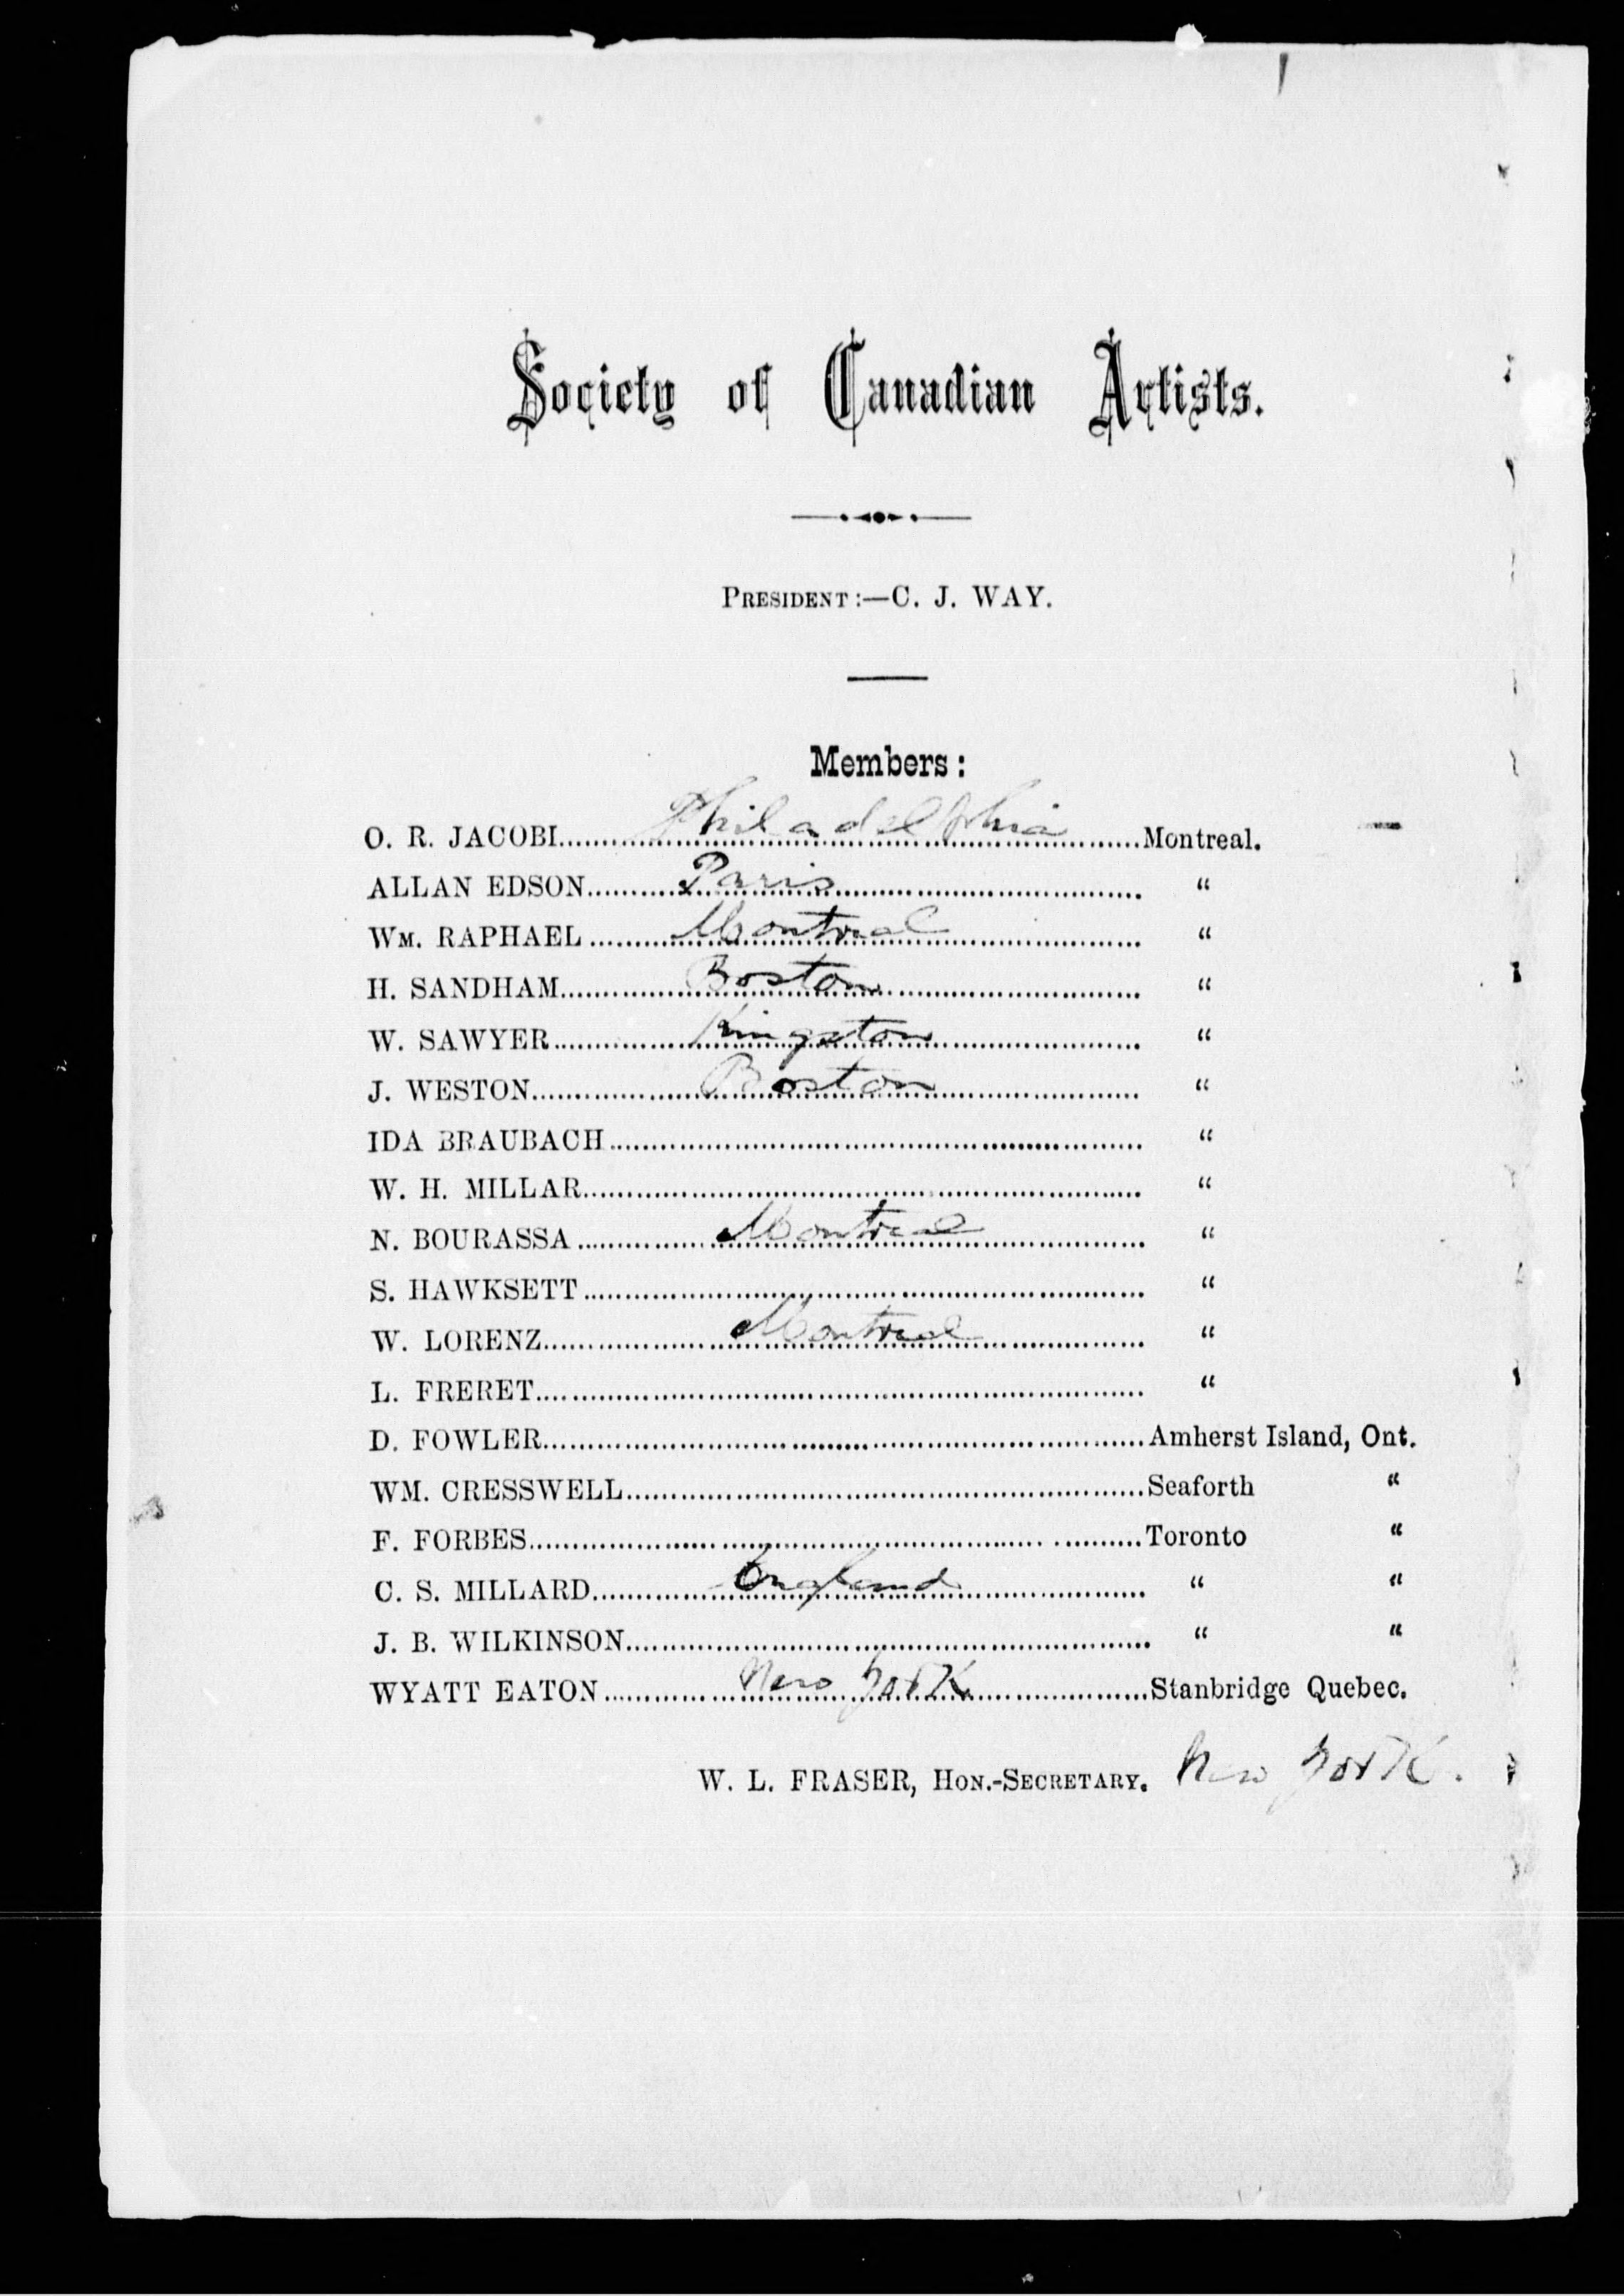 Society of Canadian Artists.
PRESIDENT:—C. J. WAY.
Members:
O. R. JACOBI....Philadelphia....Montreal.
ALLAN EDSON....Paris....“
WM. RAPHAEL....Montreal....“
H. SANDHAM....Boston....“
W. SAWYER....Kingston....“
J. WESTON....Boston....“
IDA BRAUBACH....“
W. H. MILLAR....“
N. BOURASSA....Montreal....“
S. HAWKSETT....“
W. LORENZ....Montreal....“
L. FRERET....“
D. FOWLER....Amherst Island, Ont.
WM. CRESSWELL....Seaforth “
F. FORBES....Toronto “
C. S. MILLARD....England....“ “
J. B. WILKINSON....“ “
WYATT EATON....New York....Stanbridge Quebec.
W. L. FRASER, HON.-SECRETARY. New York.